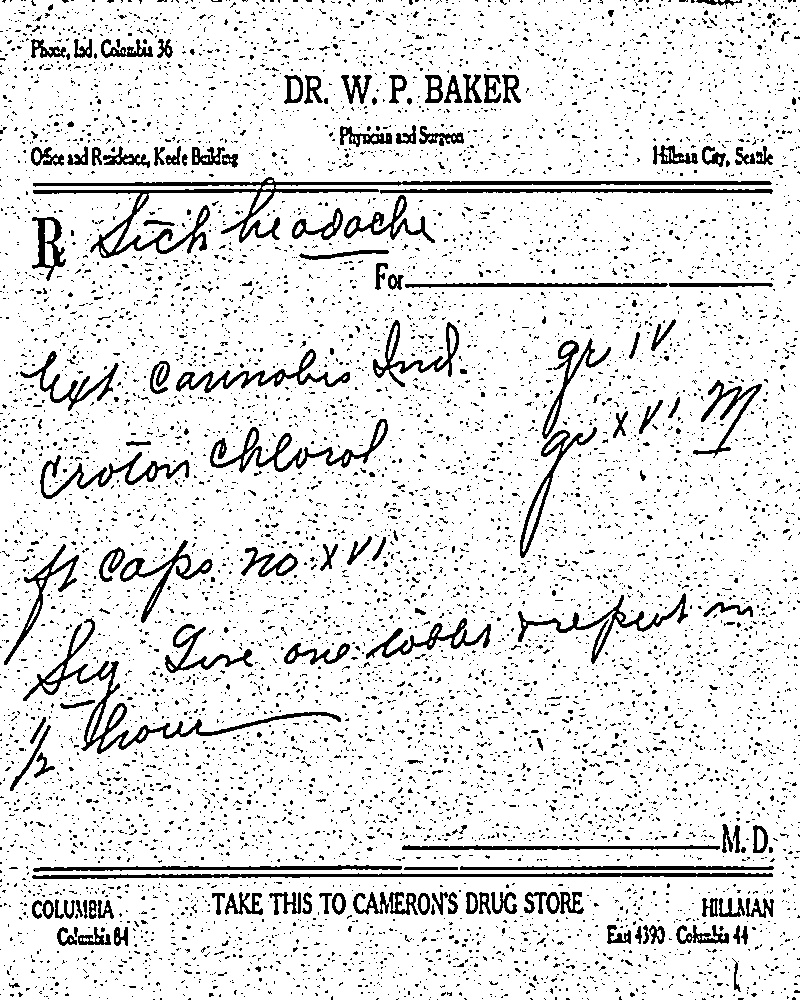 Phone, Ind. Columbia 36
DR. W. P. BAKER
Physician and Surgeon
Office and Residence, Keefe Building Hillman City, Seattle
℞ Sick headache
For
Ext. Cannabis Ind. gr IV
Croton Chloral gr XVI M
ft caps no XVI
Sig Give one & repeat in
1/2 hour
M. D.
COLUMBIA TAKE THIS TO CAMERON'S DRUG STORE HILLMAN
Columbia 84 East 4390 Columbia 44